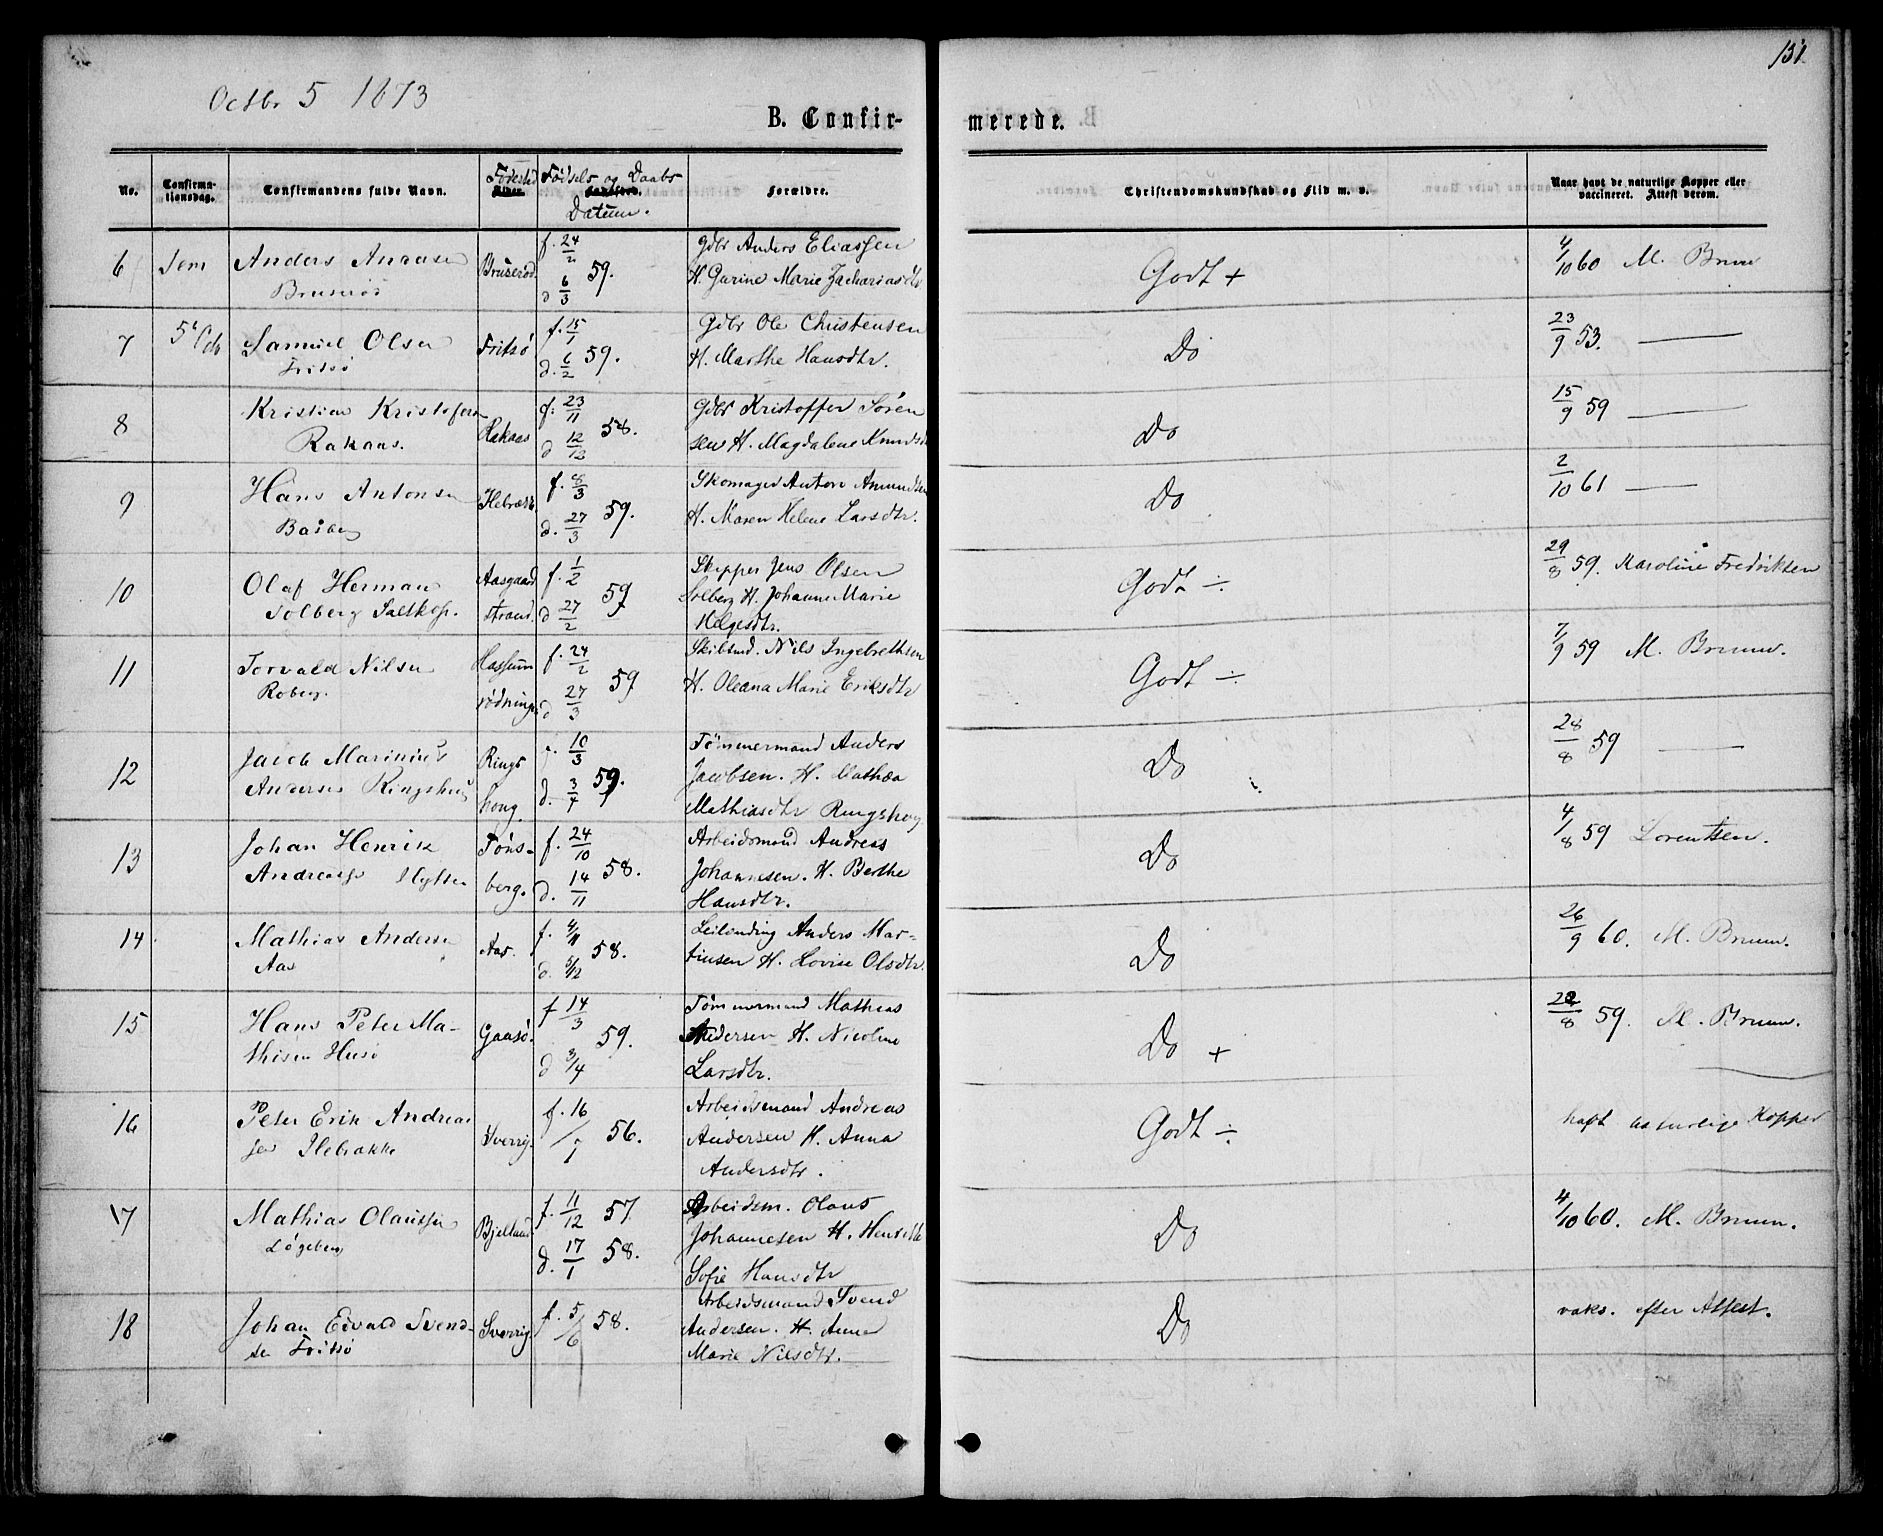 131
Octbr 5 1873
B. Confirmerede.
No. Confirmationsdag. Confirmandens fulde Navn. Fødested Fødsels og Daabs Datum. Forældre. Christendomskundskab og Flid m. v. Naar havt de naturlige Kopper eller vaccineret. Attest derom.
6 Sem Anders Andrsen Bruserød Gdbr Anders Eliassen Godt + 4/10 60 M. Bruun
Bruserød f. 24/2 d 6/3 59. H. Gurine Marie Zachariasdtr
7 5t Octb Samuel Olsen Fritsø f. 15/1 Gdbr Ole Christensen Do 23/9 53. —
Fritsø d. 6/2 59. H. Marthe Hansdtr.
8 Kristian Kristofersen Rakaas f. 23/11 Gdbr Kristoffer Søren Do 15/9 59 —
Rakaas. d 12/12 58. sen H. Magdalene Knudsd
9 Hans Antonsen Ilebrække f. 8/3 Skomager Anton Amundsen Do 2/10 61 —
Basberg d. 27/3 59. H. Maren Helene Larsdtr.
10 Olaf Herman Aasgaard f. 1/2 Skipper Jens Olsen Godt ÷ 29/8 59. Karoline Fredriksen
Solberg Saltkop. strand. d 27/2 59 Solberg H. Johanne Marie
Helgesdtr.
11 Torvald Nilsen Hassum f. 24/2 Skibsmd. Nils Ingebrethsen Godt ÷ 7/9 59 M. Bruun.
Roberg. rødningen d 27/3 59 H. Oleana Marie Eriksdtr
12 Jacob Marinius Rings f. 10/3 Tømmermand Anders Do 28/8 59 —
Andersen Ringshaug haug. d. 3/4 59. Jacobsen. H. Mathea
Mathiasdtr Ringshoug
13 Johan Henrik Tøns- f. 24/10 Arbeidsmand Andreas Do 4/8 59 Lorentsen.
Andreass Hytten berg. d. 14/11 58. Johannesen. H. Berthe
Hansdtr.
14. Mathias Andersen Aas. f. 4/11 Leilending Anders Mar- Do 26/9 60. M. Bruun.
Aas d. 5/12 58. tinsen H. Lovise Olsdtr.
15 Hans Peter Ma- Gaasø. f 14/3 Tømmermand Mathias Do + 22/8 59. M. Bruun.
thisen Husø d 3/4 59. Andersen H. Nicoline
Larsdtr.
16 Peter Erik Andrea Sverrig. f. 16/1 56. Arbeidsmand Andreas Godt ÷ haft naturlige Kopper
sen Ilebrække Andersen H. Anna
Andersdtr.
17 Mathias Olaussen Bjelland f. 11/12 57. Arbeidsm. Olaus Do 4/10 60. M. Bruun.
Løgeberg d. 17/1 58. Johannesen H. Henrikke
Sofie Hansdtr
18 Johan Edvard Svend- Sverrig f. 5/6 58. Arbeidsmand Svend Do vaks. efter Attest.
sen Fritsø Andersen. H. Anne
Marie Nilsdtr.